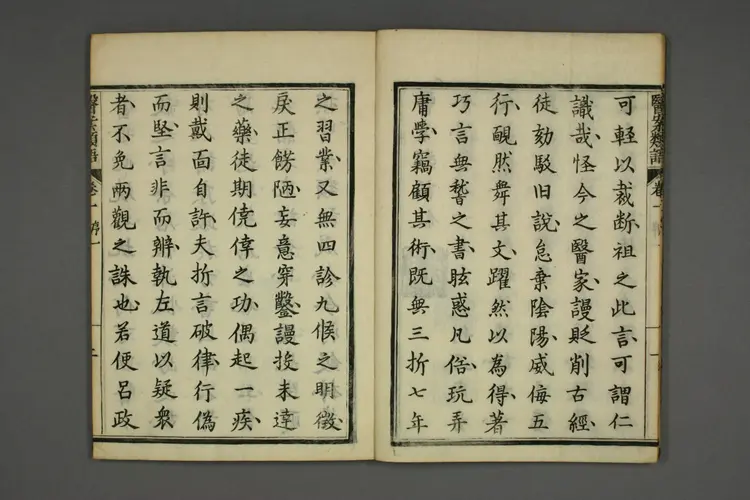 醫案類語
可輕以裁断祖之此言可謂仁
識哉怪今之醫家謾貶削古經
徒効駁旧說怠棄陰陽威侮五
行靦然舞其文躍然以為得著
巧言無稽之書眩惑凡俗玩弄
庸學竊顧其術既無三折七年
之習業又無四診九候之明徵
戾正餝陋妄意穿鑿謾投未達
之藥徒期僥倖之功偶起一疾
則戴面自許夫折言破律行偽
而堅言非而辨執左道以疑衆
者不免兩觀之誅也若便呂政
醫案類語 卷一 二